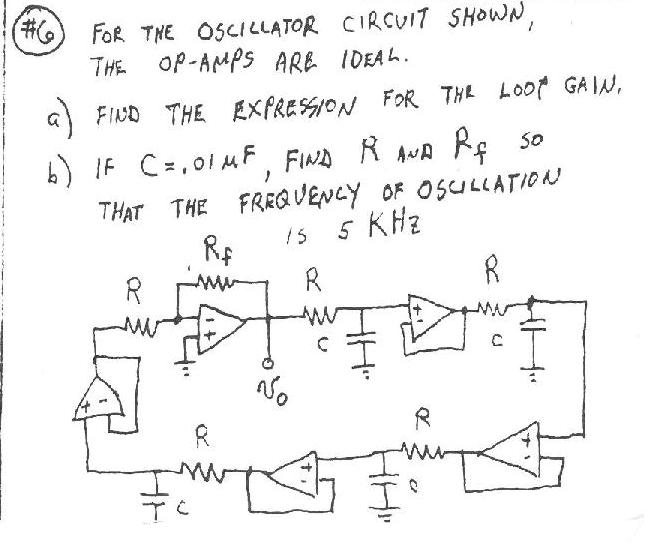 #6 FOR THE OSCILLATOR CIRCUIT SHOWN,
THE OP-AMPS ARE IDEAL.
a) FIND THE EXPRESSION FOR THE LOOP GAIN.
b) IF C=.01 μF, FIND R AND Rf SO
THAT THE FREQUENCY OF OSCILLATION
IS 5 KHz
Rf
R
R
R
-
+
+
-
C
C
vo
+ -
R
R
+
-
+
-
C
C